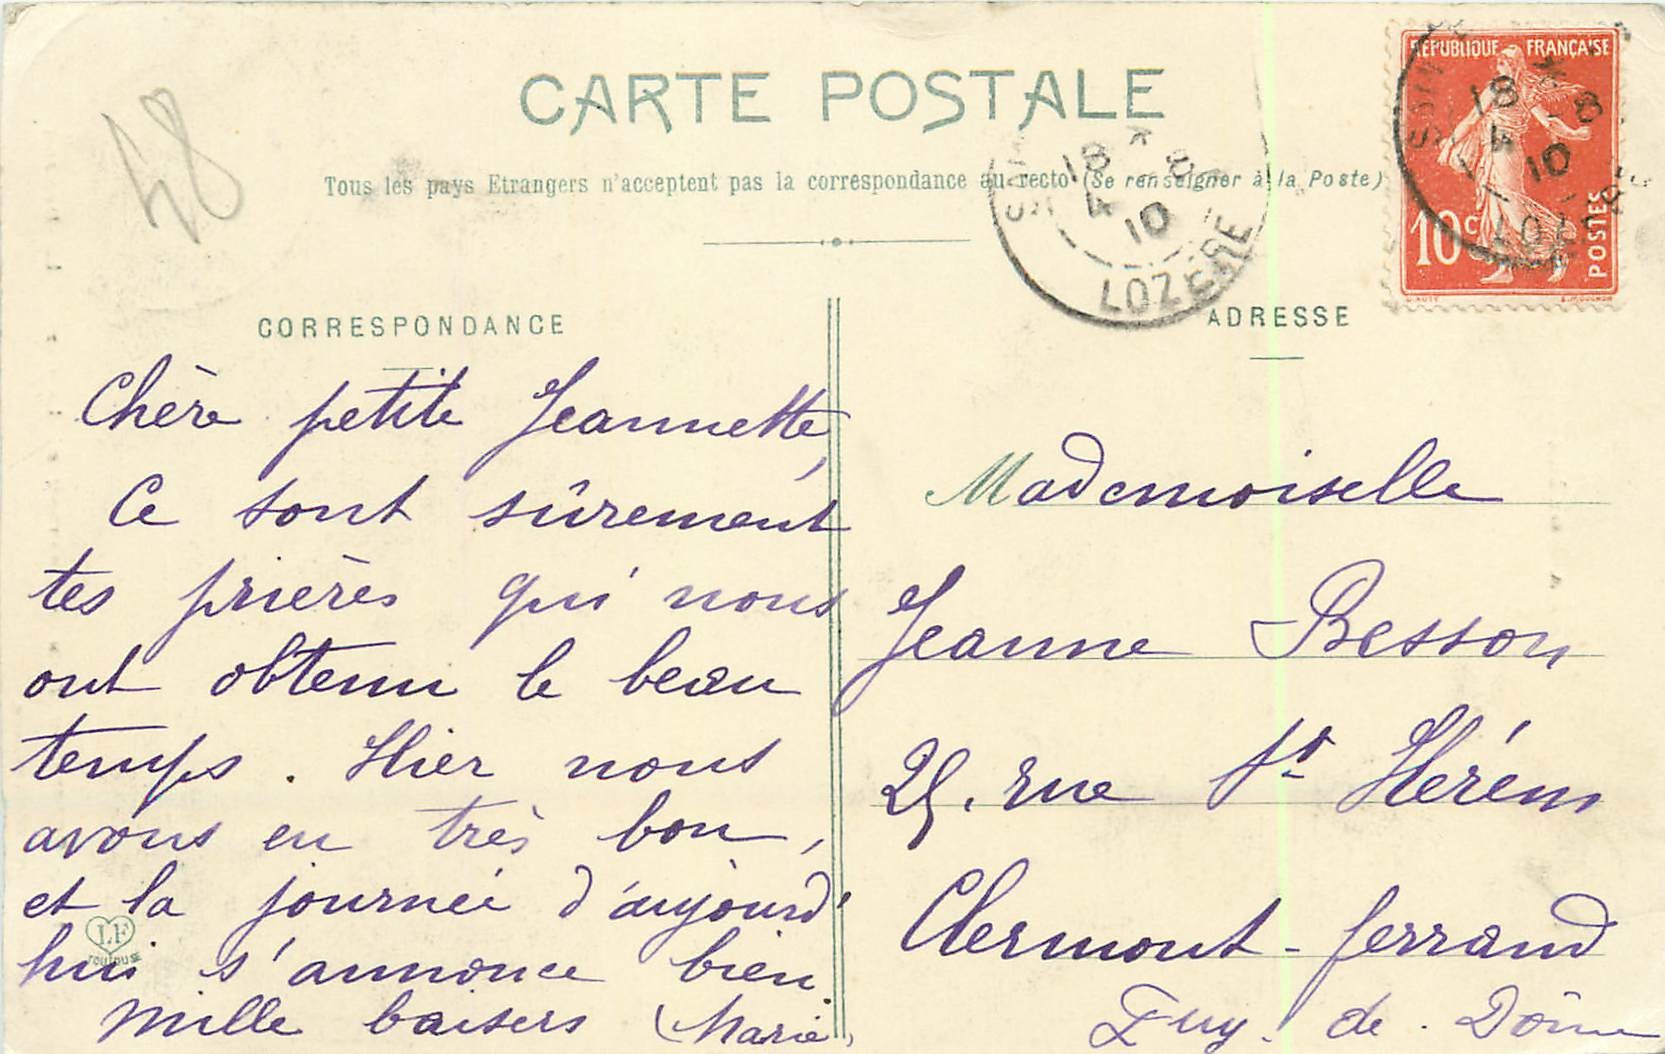 48
CARTE POSTALE
Tous les pays Etrangers n'acceptent pas la correspondance au recto (Se renseigner à la Poste)
REPUBLIQUE FRANÇAISE
10c
POSTES
18 - 8
4 10
LOZÈRE
18 - 8
4 10
LOZÈRE
CORRESPONDANCE
Chère petite Jeannette,
Ce sont sûrement
tes prières qui nous
ont obtenu le beau
temps. Hier nous
avons eu très bon,
et la journée d'aujourd'
hui s'annonce bien
Mille baisers (Marie)
LF
TOULOUSE
ADRESSE
Mademoiselle
Jeanne Besson
25, rue St Hérem
Clermont-ferrand
Puy-de-Dôme